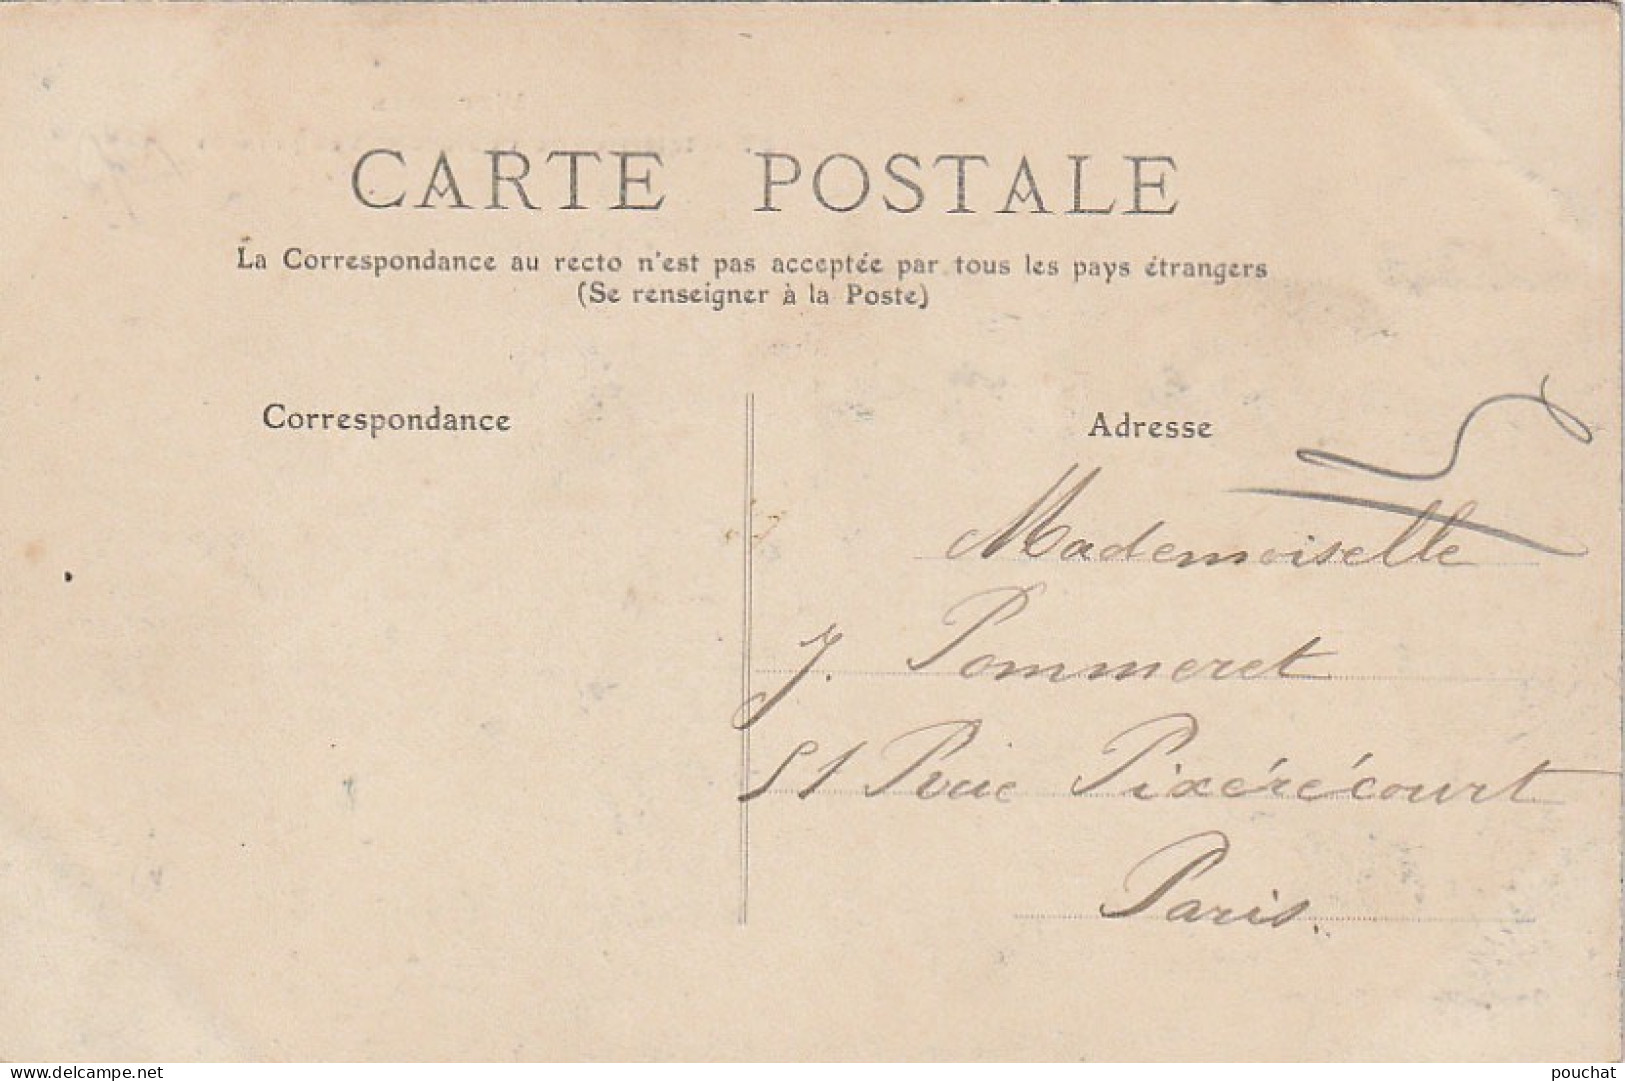 CARTE POSTALE
La Correspondance au recto n'est pas acceptée par tous les pays étrangers
(Se renseigner à la Poste)
Correspondance
Adresse
Mademoiselle
J. Pommeret
51 Rue Pixérécourt
Paris.
www.delcampe.net
pouchat